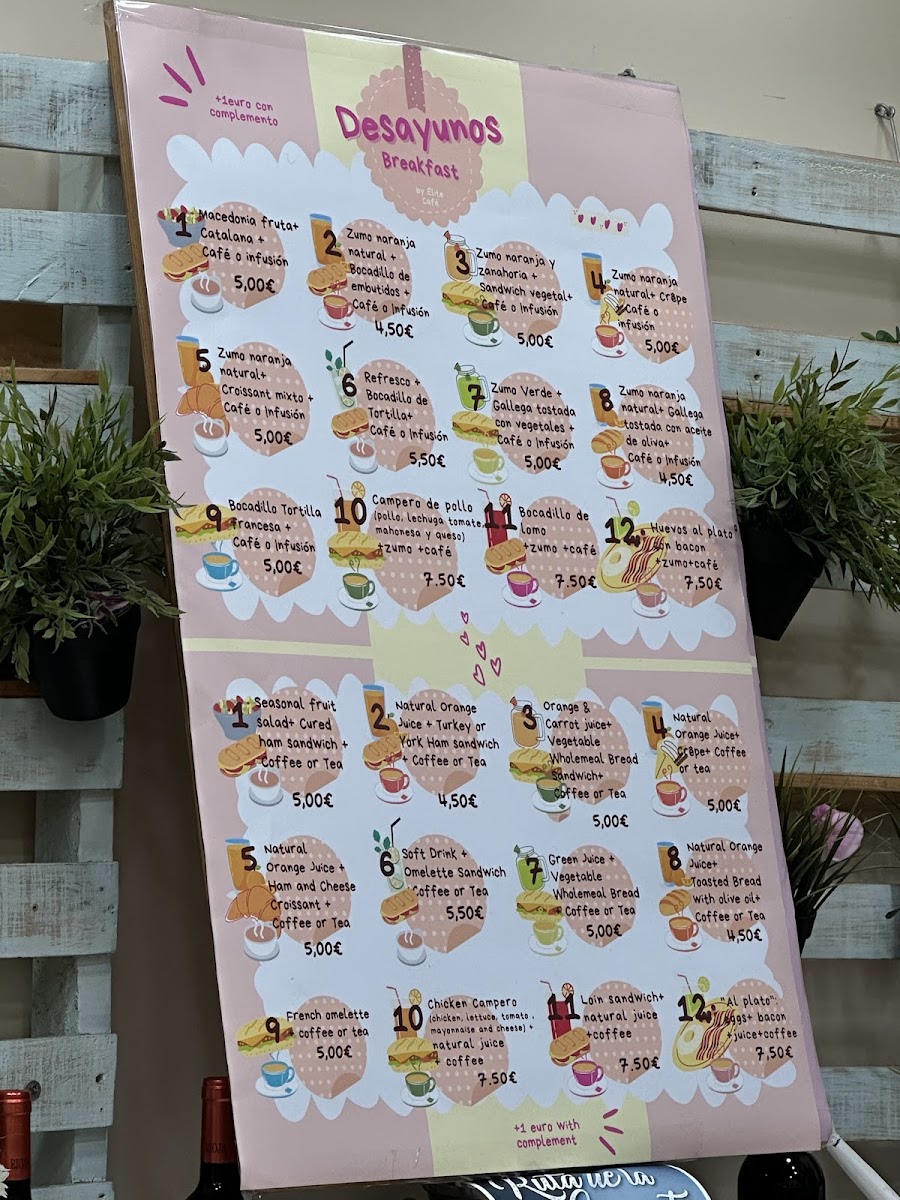 +1euro con
complemento
Desayunos
Breakfast
by Elite
Café
1
Macedonia fruta+
Catalana +
Café o infusión
5,00€
2
Zumo naranja
natural +
Bocadillo de
embutidos +
Café o Infusión
4,50€
3
Zumo naranja y
zanahoria +
Sandwich vegetal+
Café o Infusión
5,00€
4
Zumo naranja
natural+ Crêpe
+Café o
infusión
5,00€
5
Zumo naranja
natural+
Croissant mixto +
Café o Infusión
5,00€
6
Refresco +
Bocadillo de
Tortilla+
Café o Infusión
5,50€
7
Zumo Verde +
Gallega tostada
con vegetales +
Café o Infusión
5,00€
8
Zumo naranja
natural+ Gallega
tostada con aceite
de oliva+
Café o Infusión
4,50€
9
Bocadillo Tortilla
francesa +
Café o Infusión
5,00€
10
Campero de pollo
(pollo, lechuga tomate,
mahonesa y queso)
+zumo +café
7.50€
11
Bocadillo de
Lomo
+zumo +café
7,50€
12
Huevos al plato
con bacon
+zumo+café
7,50€
1
Seasonal fruit
salad+ Cured
ham sandwich +
Coffee or Tea
5,00€
2
Natural Orange
Juice + Turkey or
York Ham sandwich
+ Coffee or Tea
4,50€
3
Orange &
Carrot juice+
Vegetable
Wholemeal Bread
Sandwich+
Coffee or Tea
5,00€
4
Natural
Orange Juice+
Crêpe+ Coffee
or tea
5,00€
5
Natural
Orange Juice +
Ham and Cheese
Croissant +
Coffee or Tea
5,00€
6
Soft Drink +
Omelette Sandwich
+Coffee or Tea
5,50€
7
Green Juice +
Vegetable
Wholemeal Bread
+ Coffee or Tea
5,00€
8
Natural Orange
Juice+
Toasted Bread
with olive oil+
Coffee or Tea
4,50€
9
French omelette
+ coffee or tea
5,00€
10
Chicken Campero
(chicken, lettuce, tomato ,
mayonnaise and cheese) +
natural juice
+ coffee
7.50€
11
Loin sandwich+
natural juice
+coffee
7.50€
12
"Al plato":
eggs+ bacon
+juice+coffee
7,50€
+1 euro with
complement
Ruta de la